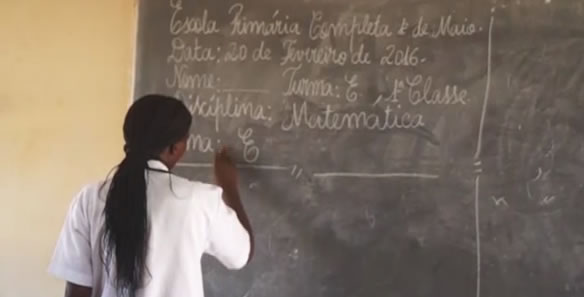 Escola Primária Completa 1º de Maio.
Data: 20 de Fevereiro de 2016.
Nome:____ Turma: E, 1ª Classe
Disciplina: Matematica
ma: E